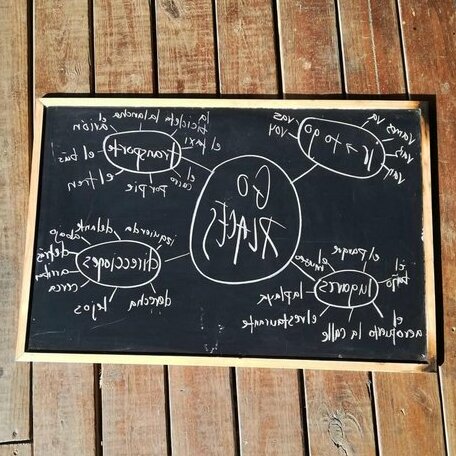 GO
PLACES
ir → to go
voy
vas
va
vamos
vais
van
transporte
el avión
la lancha
la bicicleta
el taxi
el carro
por pie
el tren
el bús
direcciones
izquierda
delante
abajo
detrás
arriba
cerca
lejos
derecha
lugares
el parque
el museo
la playa
el restaurante
la calle
el
aeropuerto
el